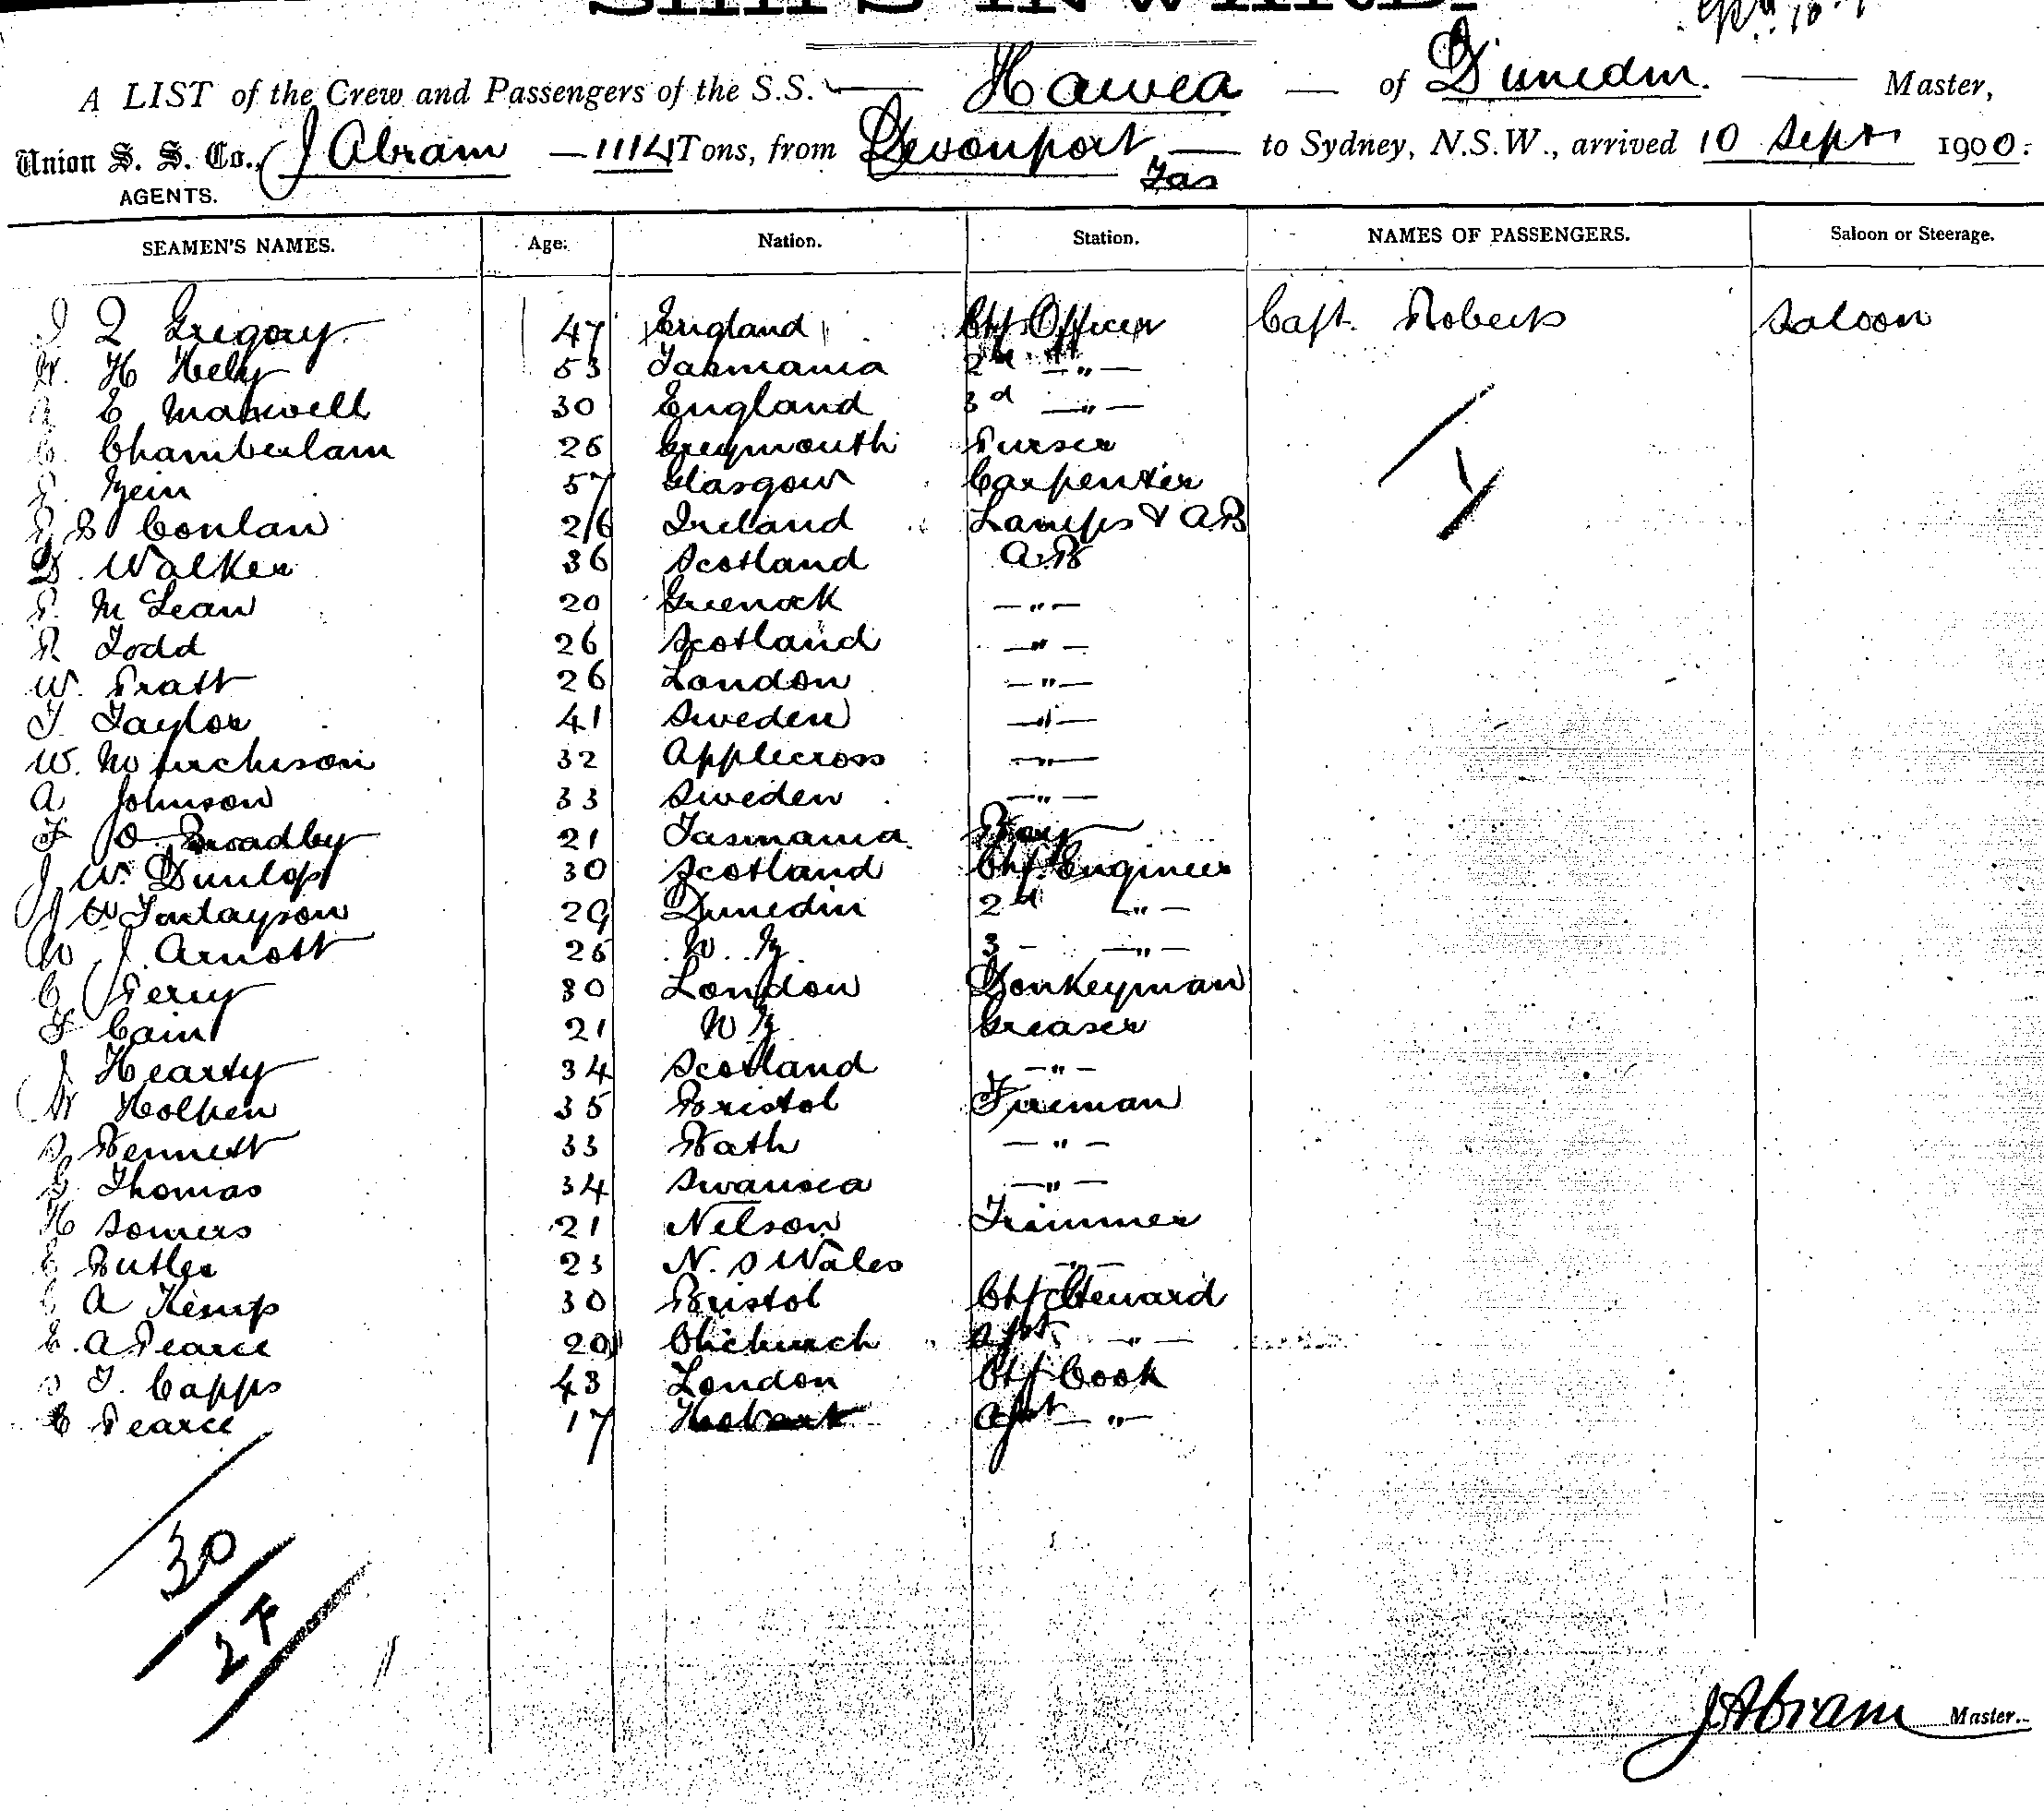 SHIPS INWARDS
A LIST of the Crew and Passengers of the S.S. Hawea of Dunedin. Master,
Union S. S. Co., J Abram 1114 Tons, from Devonport to Sydney, N.S.W., arrived 10 Sept 1900.
Tas
AGENTS.
SEAMEN'S NAMES. Age. Nation. Station. NAMES OF PASSENGERS. Saloon or Steerage.
Gregory 47 England Chf Officer Capt. Roberts Saloon
H Hely 53 Tasmania 2nd "
E Maxwell 30 England 3d "
Chamberlain 26 Greymouth Purser
57 Glasgow Carpenter
B Conlan 26 Ireland Lamps & AB
D. Walker 36 Scotland AB
McLean 20 Greenock "
R Todd 26 Scotland "
W. Pratt 26 London "
T. Taylor 41 Sweden "
W. Murchison 32 Applecross "
A Johnson 33 Sweden "
F O Broadby 21 Tasmania Boy
J W. Dunlop 30 Scotland Chf. Engineer
J W Finlayson 29 Dunedin 2nd "
W J. Arnott 26 N. Z. 3 - "
C Perry 30 London Donkeyman
F Cain 21 N Z Greaser
J Hearty 34 Scotland "
W Holpen 35 Bristol Fireman
Bennett 33 Bath "
Thomas 34 Swansea "
H Somers 21 Nelson Trimmer
Butler 23 N. S Wales "
A Kemp 30 Bristol Chf Steward
E. A Pearce 20 Chchurch asst "
T. Capps 43 London Chf Cook
C Pearce 17 Hobart asst "
30
2 F
J. Abram Master.